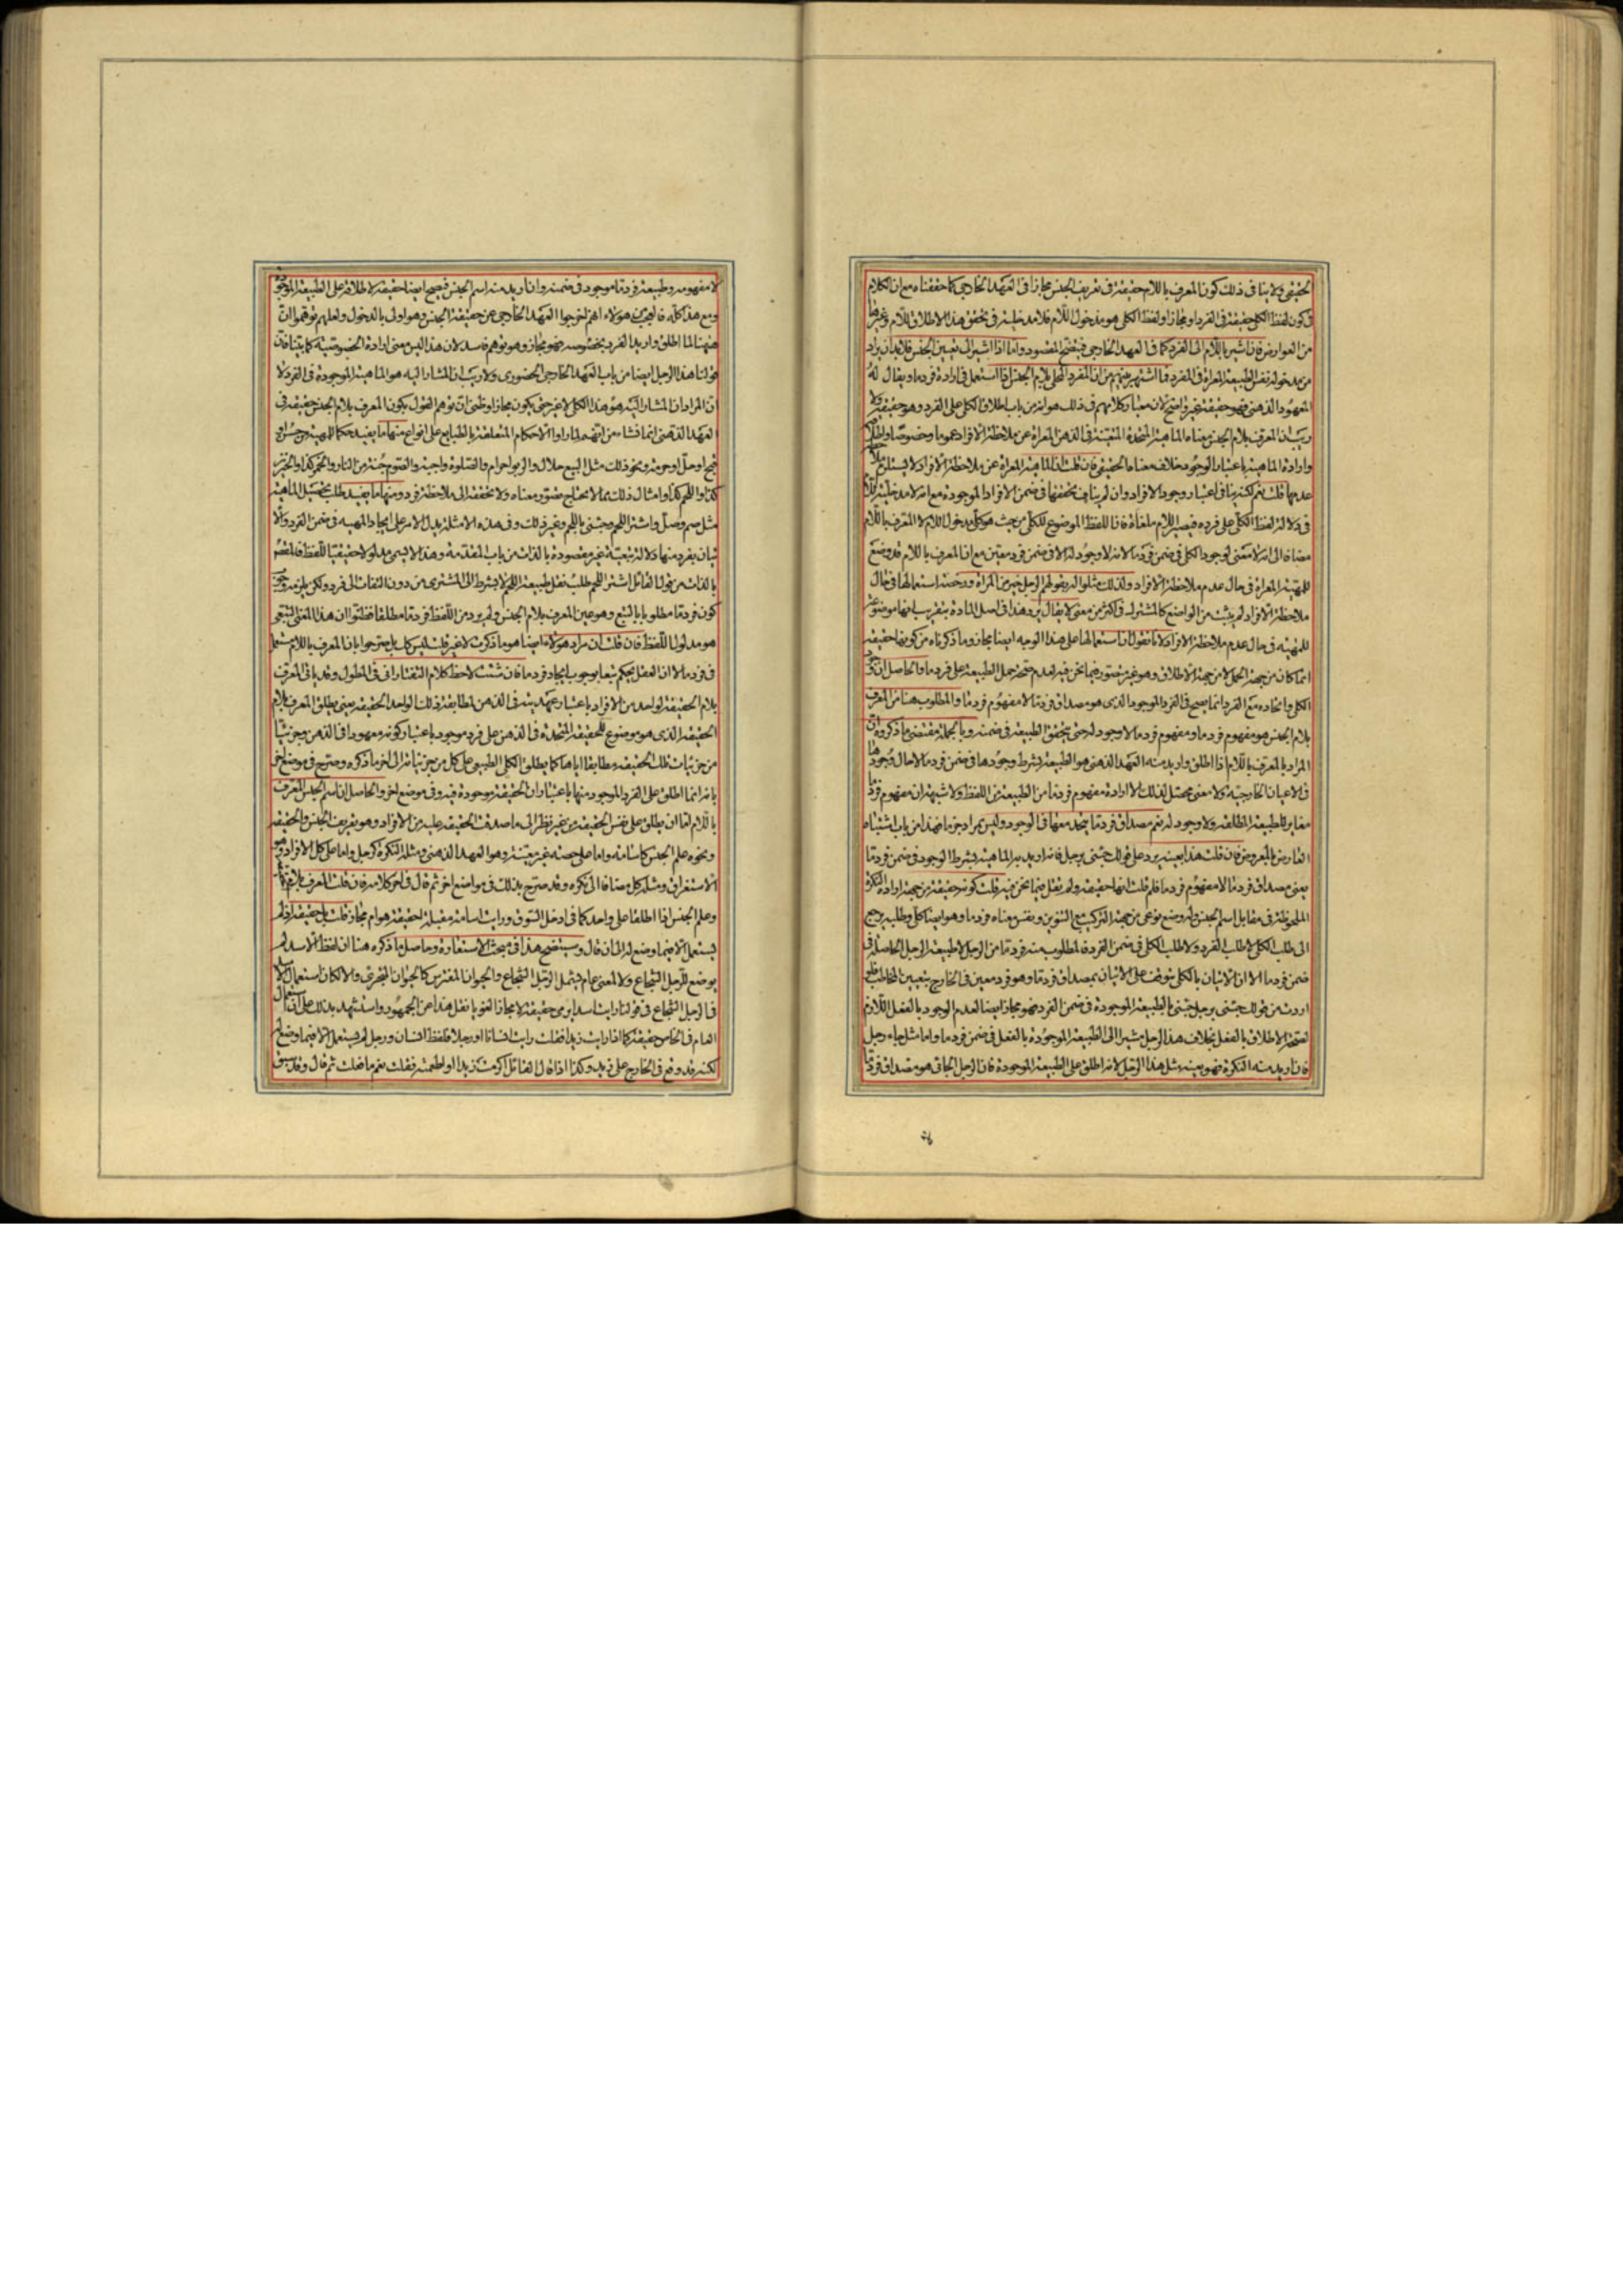 الحقيقي ولا ينافى ذلك كون المعرف باللام حقيقة فى تعريف الجنس مجازا فى العهد الخارجى كما حققناه مع ان الكلام
فى كون لفظ الكلى حقيقة فى الفرد او مجازا ولفظ الكلى هو مدخول اللام فلا مدخلية فى تحقق هذا الاطلاق للام وغيرها
من العوارض فان اشير باللام الى الفرد كما فى العهد الخارجى فيتضح المقصود واما اذا اشير الى تعيين الجنس فلا بد ان يراد
من مدخوله نفس الطبيعة المعراة فى المفرد فما اشتهر بينهم من ان المفرد المحلى بلام الجنس اذا استعمل فى ارادة فرد ما ويقال له
المعهود الذهنى فهو حقيقة غير واضح لان معيار كلامهم فى ذلك هو انه من باب اطلاق الكلى على الفرد وهو حقيقة ولا
ريب ان المعرف بلام الجنس معناه الماهية المتحدة المتعينة فى الذهن المعراة عن ملاحظة الافراد عموما وخصوصا واطلاقه
وارادة الماهية باعتبار الوجود خلاف معناه الحقيقى فان قلت ان الماهية المعراة عن ملاحظة الافراد لا يستلزم ملاحظة
عدمها قلت نعم لكنه ينافى اعتبار وجود الافراد وان لم يناف تحققها فى ضمن الافراد الموجودة مع انه لا مدخلية للام
فى دلالة لفظ الكلى على فرده فيصير اللام ملغاة فان اللفظ الموضوع للكلى من حيث هو كلى مدخول اللام لا المعرف باللام
مضافا الى انه لا معنى لوجود الكلى فى ضمن فرد ما لانه لا وجود له الا فى ضمن فرد معين مع ان المعرف باللام قد وضع
للمهية المعراة فى حال عدم ملاحظة الافراد ولذلك مثلوا له بقولهم الرجل خير من المراة ورخصة استعمالها فى حال
ملاحظة الافراد لم يثبت من الواضع كالمشترك فى اكثر من معنى لا يقال يرد هذا فى اصل المادة بتقريب انها موضوعة
للمهية فى حال عدم ملاحظة الافراد لانا نقول ان استعمالها على هذا الوجه ايضا مجاز وما ذكرناه من كونها حقيقة
انما كان من جهة الحمل لا من جهة الاطلاق وهو غير متصور فيما نحن فيه لعدم صحة حمل الطبيعة على فرد ما والحاصل ان وجود
الكلى واتحاده مع الفرد انما يصح فى الفرد الموجود الذى هو مصداق فرد ما لا مفهوم فرد ما والمطلوب هنا من المعرف
بلام الجنس هو مفهوم فرد ما ومفهوم فرد ما لا وجود له حتى يتحقق الطبيعة فى ضمنه وبالجملة مقتضى ما ذكروه ان
المراد بالمعرف باللام اذا اطلق واريد منه العهد الذهنى هو الطبيعة بشرط وجودها فى ضمن فرد ما لا حال وجودها
فى الاعيان الخارجية ولا معنى محصل لذلك الا ارادة مفهوم فرد ما من الطبيعة من اللفظ ولا شبهة ان مفهوم فرد ما
مغاير للطبيعة المطلقة ولا وجود له نعم مصداق فرد ما يتحد معها فى الوجود وليس بمراد جزما فهذا من باب اشتباه
العارض بالمعروض فان قلت هذا بعينه يرد على قولك جئنى برجل فانه اريد به الماهية بشرط الوجود فى ضمن فرد ما
يعنى مصداق فرد ما لا مفهوم فرد ما فلم قلت انها حقيقة ولم تقل فيما نحن فيه قلت كونه حقيقة من جهة ارادة النكرة
الملحوظة فى مقابل اسم الجنس وله وضع نوعى من جهة التركيب مع التنوين ونفس معناه فرد ما وهو ايضا كلى وطلبه يرجع
الى طلب الكلى لا طلب الفرد ولا طلب الكلى فى ضمن الفرد فالمطلوب منه فرد ما من الرجل لا طبيعة الرجل الحاصلة فى
ضمن فرد ما الا ان الاتيان بالكلى يتوقف على الاتيان بمصداق فرد ما وهو فرد معين فى الخارج بتعيين المخاطب فلو
اردت من قولك جئنى برجل جئنى بالطبيعة الموجودة فى ضمن الفرد فهو مجاز ايضا لعدم الوجود بالفعل اللازم
لصحة الاطلاق بالفعل بخلاف هذا الرجل مشيرا الى الطبيعة الموجودة بالفعل فى ضمن فرد ما واما مثل جاء رجل
فان اريد منه النكرة فهو بعينه مثل هذا الرجل لانه اطلق على الطبيعة الموجودة فان الرجل الجائى هو مصداق فرد ما
لا مفهومه وطبيعة فرد ما موجود فى ضمنه وان اريد منه اسم الجنس فيصح ايضا حقيقة لاطلاقه على الطبيعة الموجودة
ومع هذا كله فالعجب من هؤلاء انهم اخرجوا العهد الخارجى عن حقيقة الجنس وهو اولى بالدخول ولعلهم توهموا ان
هيهنا لما اطلق واريد الفرد بخصوصه فهو مجاز وهو توهم فاسد لان هذا ليس معنى ارادة الخصوصية كما بينا فان
قولنا هذا الرجل ايضا من باب العهد الخارجى الحضورى ولا ريب ان المشار اليه هو الماهية الموجودة فى الفرد لا
ان المراد ان المشار اليه هو هذا الكلى لا غير حتى يكون مجازا وظنى ان توهم القول بكون المعرف بلام الجنس حقيقة فى
العهد الذهنى انما نشاء من انهم لما راوا الاحكام المتعلقة بالطبايع على انواع منها ما يفيد حكما للمهية من حسن او
قبح او حل او حرمة ونحو ذلك مثل البيع حلال والربوا حرام والصلوة واجبة والصوم جنة من النار والخمر كذا والخنزير
كذا واللحم كذا وامثال ذلك مما لا يحتاج تصور معناه ولا تحققه الى ملاحظة فرد ومنها ما يفيد طلب تحصيل الماهية
مثل صم وصل واشتر اللحم وجئنى باللحم وغير ذلك وفى هذه الامثلة يدل الامر على ايجاد المهية فى ضمن الفرد والا
تيان بفرد منها دلالة تبعية غير مقصودة بالذات من باب المقدمة وهذا لا يسمى مدلولا حقيقيا للفظ فالمقصود
بالذات من قول القائل اشتر اللحم طلب نفس طبيعة اللحم لا بشرط الى المشترى من دون التفات الى فرد ولكن يلزمه وجوب
كون فرد ما مطلوبا بالتبع وهو عين المعرف بلام الجنس ولم يرد من اللفظ فرد ما مطلقا فظنوا ان هذا المعنى التبعى
هو مدلول اللفظ فان قلت ان مراد هؤلاء ايضا هو ما ذكرت لا غير قلت ليس كك بل صرحوا بان المعرف باللام مستعمل
فى فرد ما لا ان العقل يحكم تبعا بوجوب ايجاد فرد ما فان شئت لاحظ كلام التفتازانى فى المطول وقد ياتى المعرف
بلام الحقيقة لواحد من الافراد باعتبار عهديته فى الذهن لمطابقة ذلك الواحد الحقيقة يعنى يطلق المعرف بلام
الحقيقة الذى هو موضوع للحقيقة المتحدة فى الذهن على فرد موجود باعتبار كونه معهودا فى الذهن وجزئيا
من جزئيات تلك الحقيقة مطابقا اياها كما يطلق الكلى الطبيعى على كل من جزئياته الى اخر ما ذكره وصرح فى موضع اخر
بانه انما اطلق على الفرد الموجود منها باعتبار ان الحقيقة موجودة فيه وفى موضع اخر والحاصل ان اسم الجنس المعرف
باللام اما ان يطلق على نفس الحقيقة من غير نظر الى ما صدقت الحقيقة عليه من الافراد وهو تعريف الجنس والحقيقة
ونحوه علم الجنس كاسامة واما على حصة غير معينة وهو العهد الذهنى ومثله النكرة كرجل واما على كل الافراد وهو
الاستغراق ومثله كل مضافا الى نكره وقد صرح بذلك فى مواضع اخر ثم قال فى اخر كلامه فان قلت المعرف بلام الحقيقة
وعلم الجنس اذا اطلقا على واحد كما فى ادخل السوق ورايت اسامة مقبلة احقيقة هو ام مجاز قلت بل حقيقة اذ لم
يستعمل الا فيما وضع له الى ان قال وسيتضح هذا فى مبحث الاستعارة وحاصل ما ذكره هنا ان لفظ الاسد لم
يوضع للرجل الشجاع ولا لمعنى عام يشمل الرجل الشجاع والحيوان المفترس كالحيوان المجترى والا لكان استعمال الاسد
فى الرجل الشجاع فى قولنا رايت اسدا يرمى حقيقة لا مجازا لغويا نقل هذا عن الجمهور واستشهد بذلك على ان استعمال
العام فى الخاص حقيقة كما اذا رايت زيدا فقلت رايت انسانا او رجلا فلفظ انسان ورجل لم يستعمل الا فيما وضع له
لكنه قد وقع فى الخارج على زيد وكذا اذا قال القائل اكرمت زيدا او اطعمته فقلت نعم ما فعلت ثم قال وقد سبق